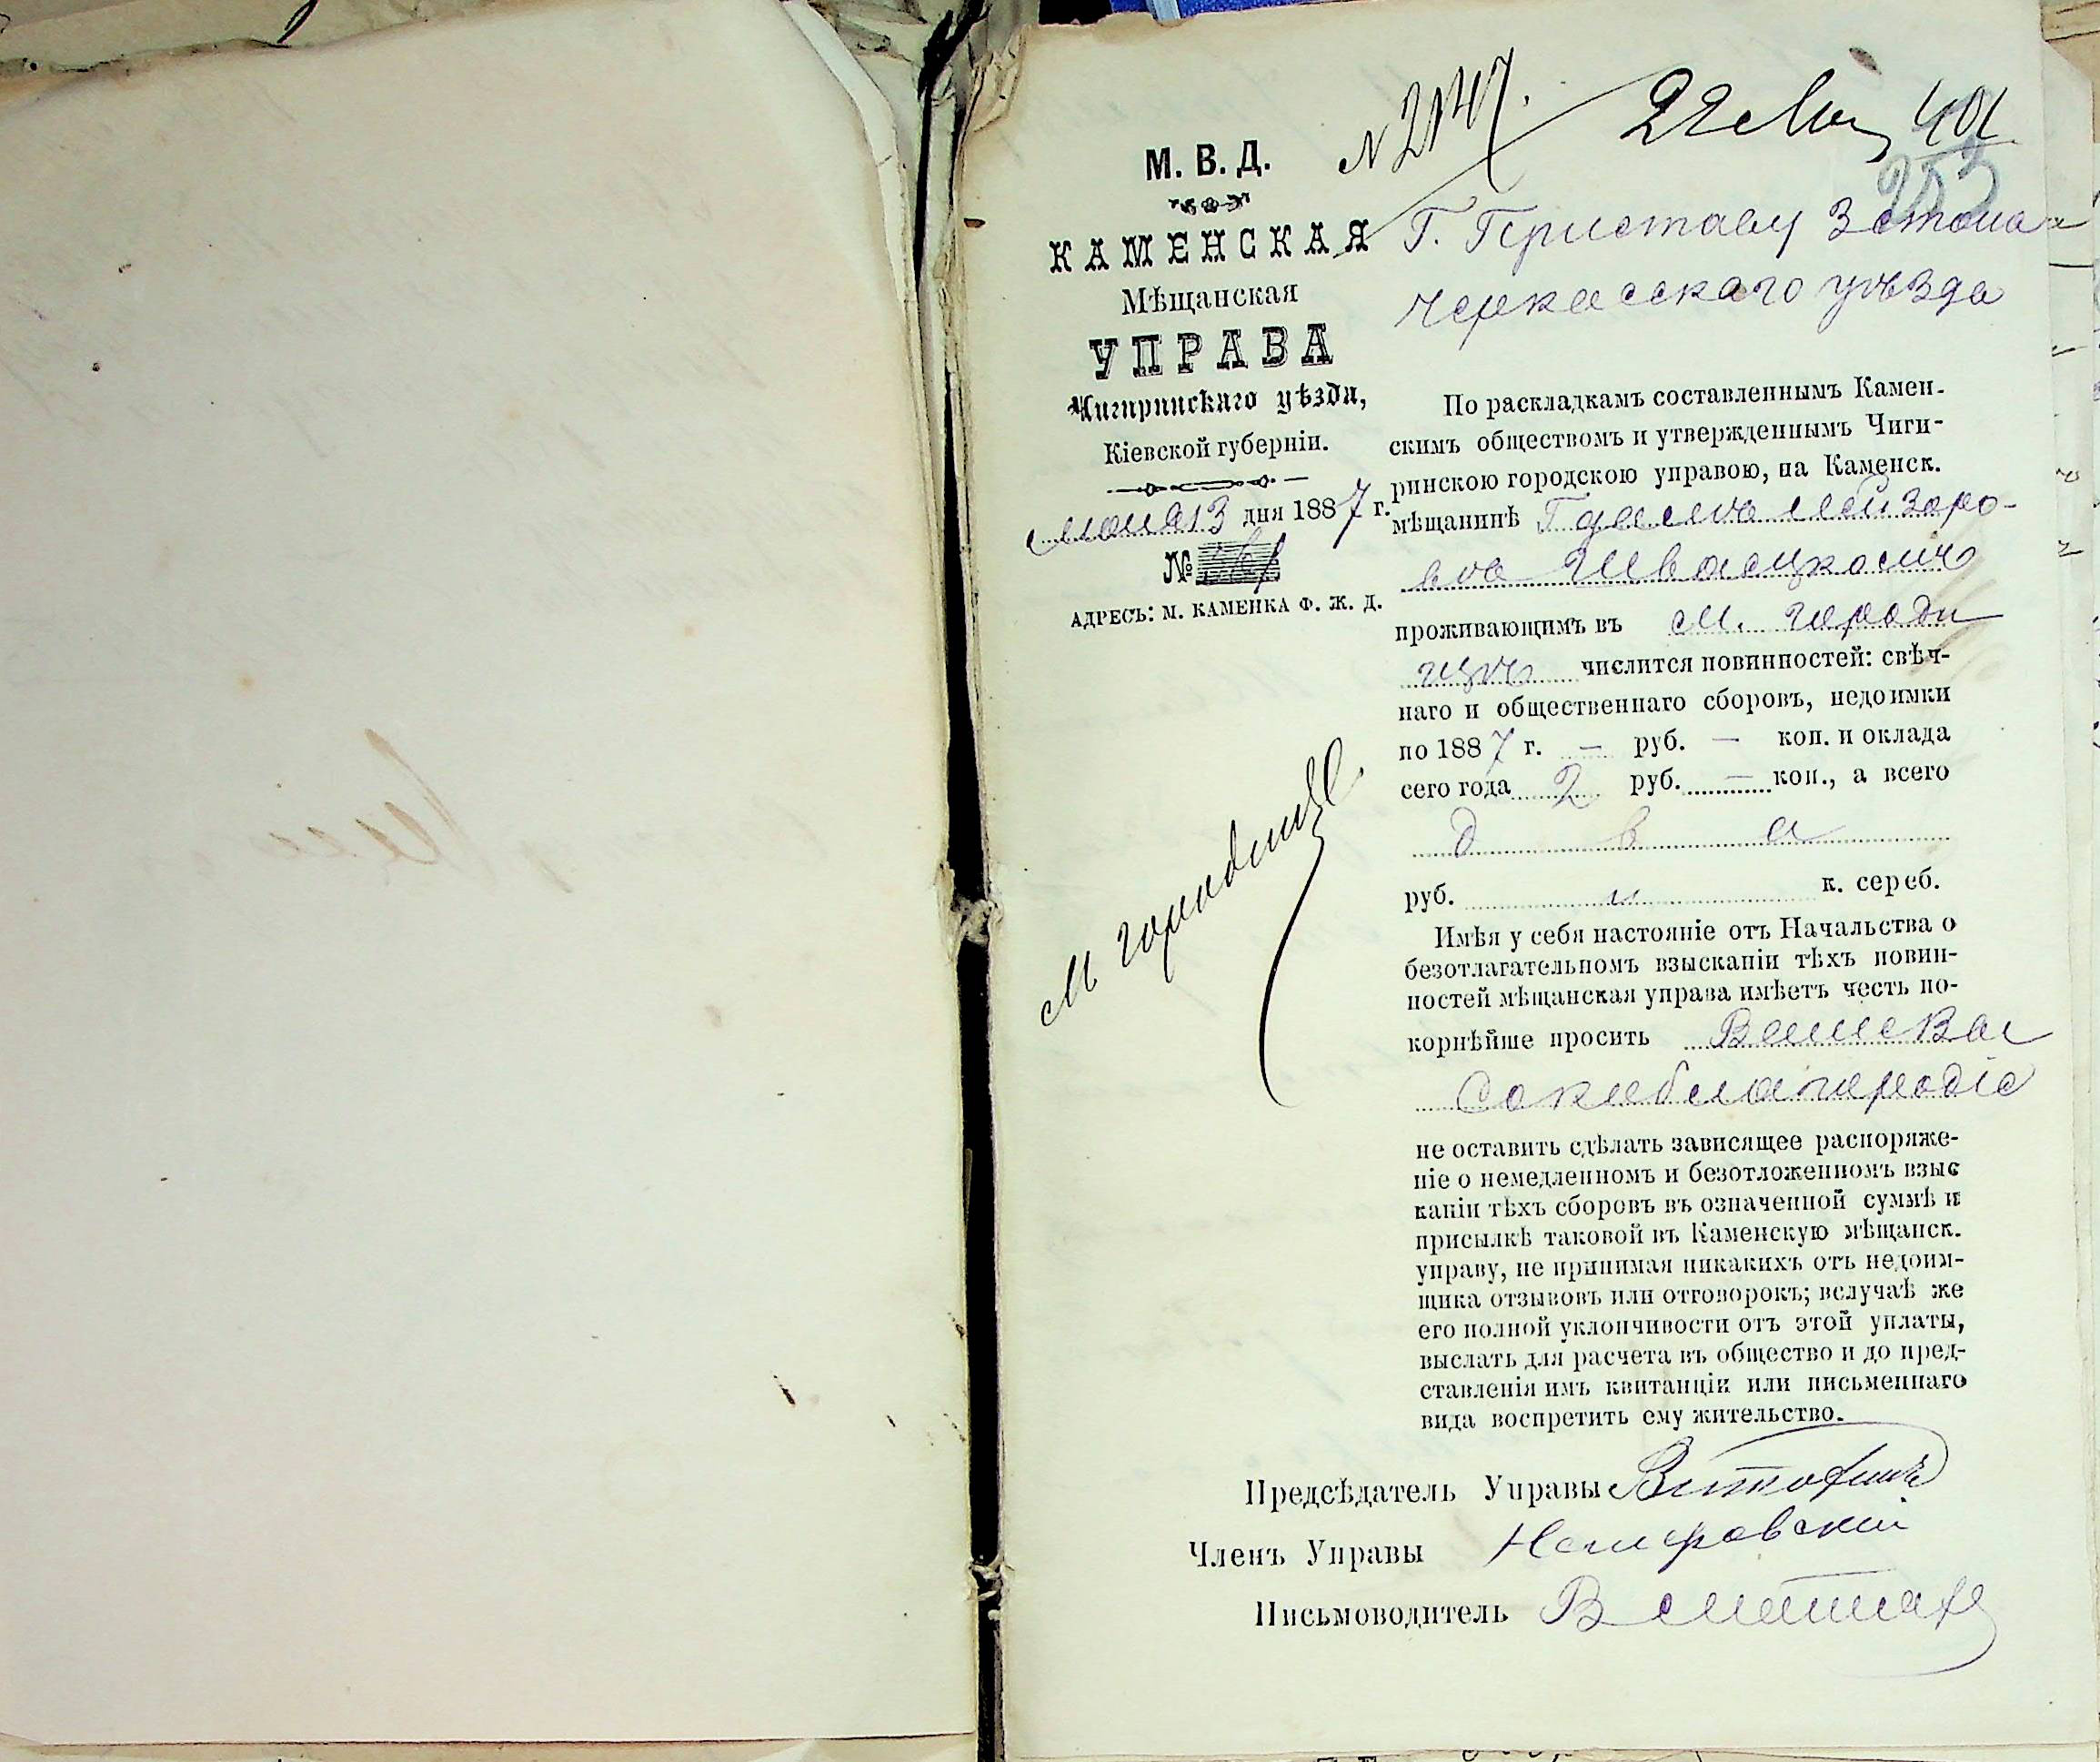 М. В. Д.
КАМЕНСКАЯ
Мѣщанская
УПРАВА
Чигиринскаго уѣзда,
Кіевской губерніи.
13 дня 1887 г.
№
АДРЕСЪ: М. КАМЕНКА Ф. Ж. Д.
М Городище
N 2147
22
401
Г. Приставу 3 стана
Черкасскаго уѣзда
По раскладкамъ составленнымъ Камен-
скимъ обществомъ и утвержденнымъ Чиги-
ринскою городскою управою, на Каменск.
мѣщанинѣ
проживающимъ въ м. Городи
щѣ числится повинностей: свѣч-
наго и общественнаго сборовъ, недоимки
по 1887 г. — руб. — коп. и оклада
сего года 2 руб. — коп., а всего
два
руб. к. сереб.
Имѣя у себя настояніе отъ Начальства о
безотлагательномъ взысканіи тѣхъ повин-
ностей мѣщанская управа имѣетъ честь по-
корнѣйше просить Ваше Вы
сокоблагородіе
не оставить сдѣлать зависящее распоряже-
ніе о немедленномъ и безотложенномъ взыс
каніи тѣхъ сборовъ въ означенной суммѣ и
присылкѣ таковой въ Каменскую мѣщанск.
управу, не принимая никакихъ отъ недоим-
щика отзывовъ или отговорокъ; вслучаѣ же
его полной уклончивости отъ этой уплаты,
выслать для расчета въ общество и до пред-
ставленія имъ квитанціи или письменнаго
вида воспретить ему жительство.
Предсѣдатель Управы
Членъ Управы
Письмоводитель